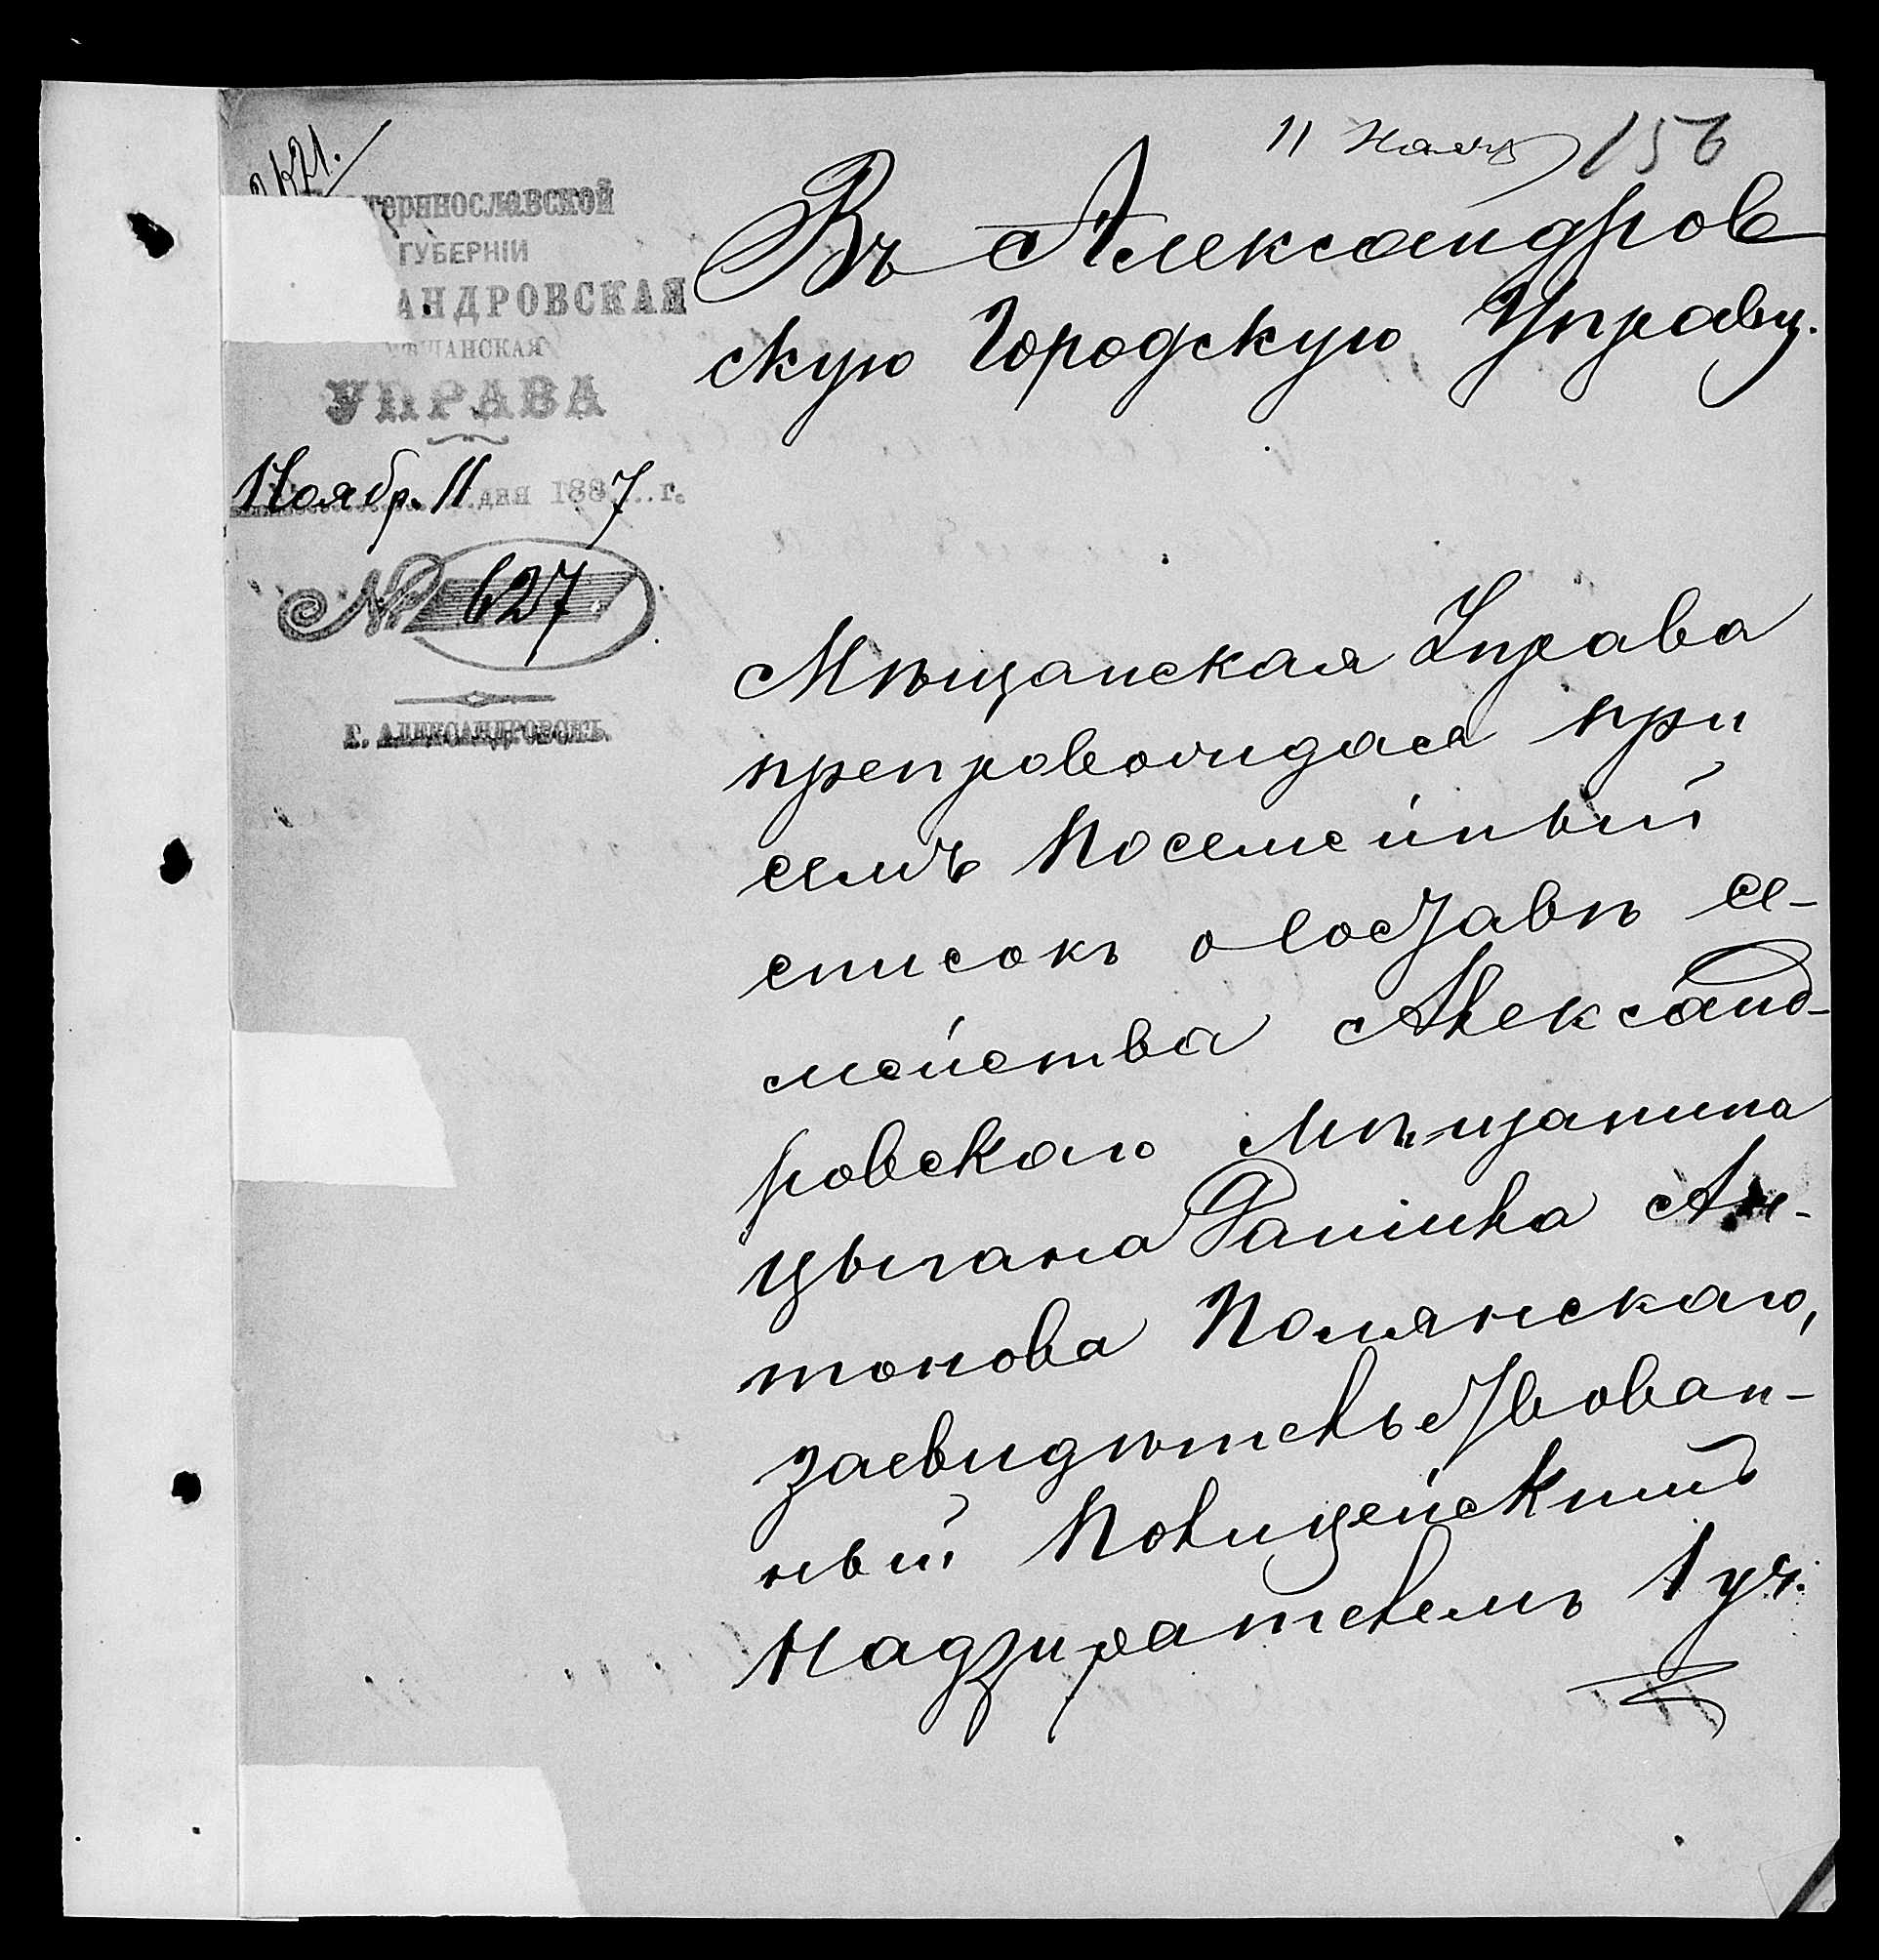 11 Нояб 156
421.
теринославской
ГУБЕРНІИ
АНДРОВСКАЯ
ЩАНСКАЯ
УПРАВА
Ноябр. 11 дня 1887 г.
№ 627
Г. АЛЕКСАНДРОВСКЪ.
Въ Александров
скую Городскую Управу.
Мѣщанская Управа
препровождая при
семъ посемейный
списокъ о Составѣ се-
мейства Александ-
ровскаго Мѣщанина
Цыгана Даніила Ан-
тонова Полянскаго,
засвидѣтельствован-
ный Полицейскимъ
Надзирателемъ 1 уч.